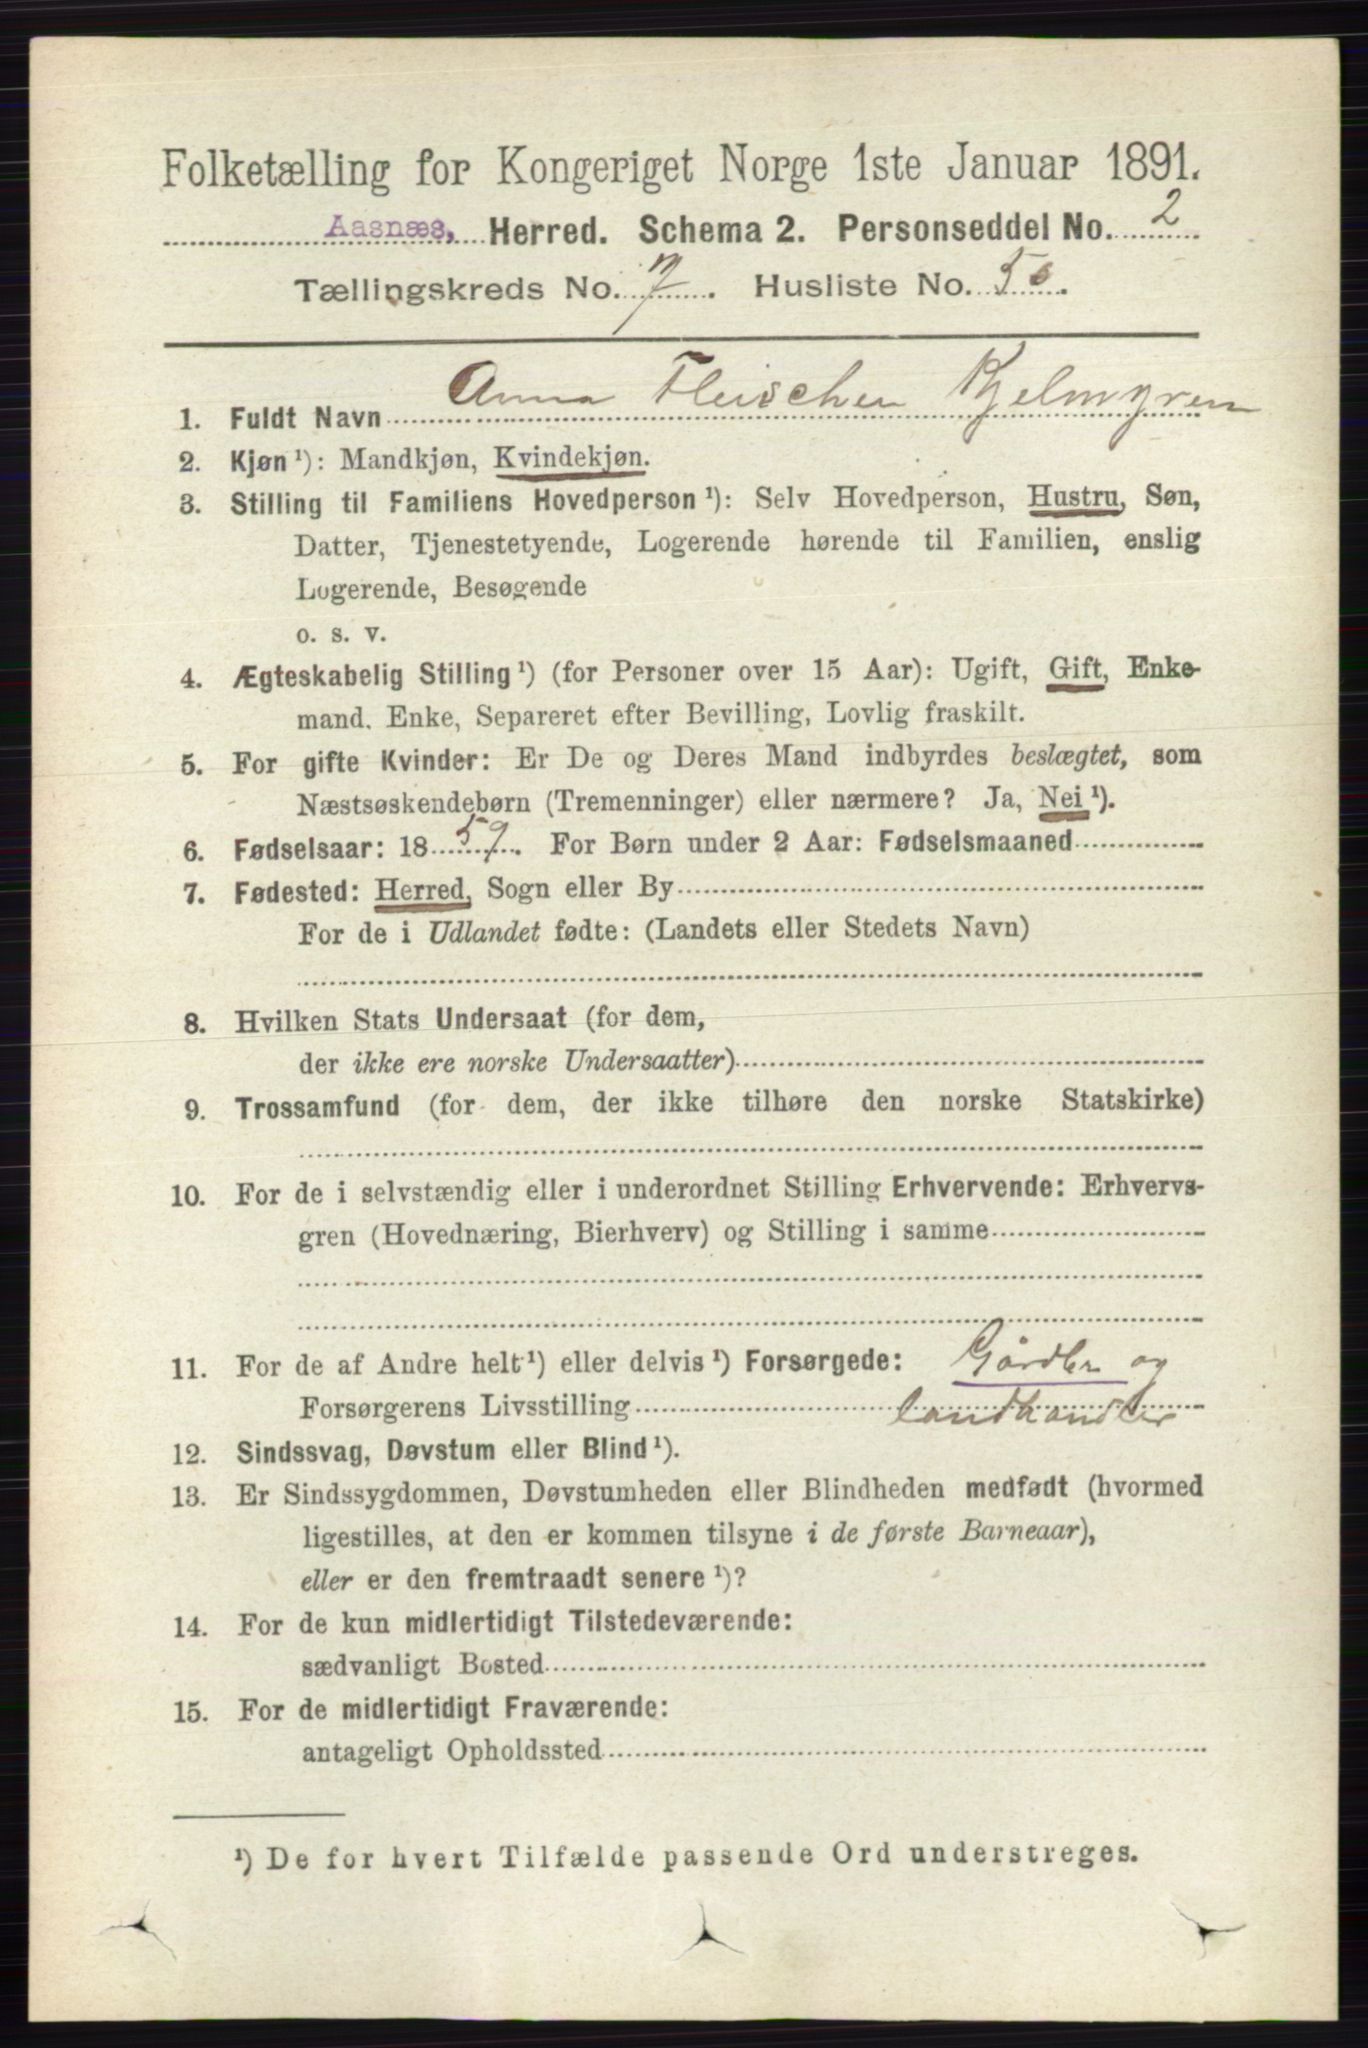 Folketælling for Kongeriget Norge 1ste Januar 1891.
Aasnæs, Herred. Schema 2. Personseddel No. 2
Tællingskreds No. 7. Husliste No. 50.
1. Fuldt Navn Anna Fleischer Kjelmyren
2. Kjøn ¹): Mandkjøn, Kvindekjøn.
3. Stilling til Familiens Hovedperson ¹): Selv Hovedperson, Hustru, Søn,
Datter, Tjenestetyende, Logerende hørende til Familien, enslig
Logerende, Besøgende
o. s. v.
4. Ægteskabelig Stilling ¹) (for Personer over 15 Aar): Ugift, Gift, Enke-
mand, Enke, Separeret efter Bevilling, Lovlig fraskilt.
5. For gifte Kvinder: Er De og Deres Mand indbyrdes beslægtet, som
Næstsøskendebørn (Tremenninger) eller nærmere? Ja, Nei ¹).
6. Fødselsaar: 1859. For Børn under 2 Aar: Fødselsmaaned
7. Fødested: Herred, Sogn eller By
For de i Udlandet fødte: (Landets eller Stedets Navn)
8. Hvilken Stats Undersaat (for dem,
der ikke ere norske Undersaatter)
9. Trossamfund (for dem, der ikke tilhøre den norske Statskirke)
10. For de i selvstændig eller i underordnet Stilling Erhvervende: Erhvervs-
gren (Hovednæring, Bierhverv) og Stilling i samme
11. For de af Andre helt ¹) eller delvis ¹) Forsørgede: Gårdbr og
Forsørgerens Livsstilling landhandler
12. Sindssvag, Døvstum eller Blind ¹).
13. Er Sindssygdommen, Døvstumheden eller Blindheden medfødt (hvormed
ligestilles, at den er kommen tilsyne i de første Barneaar),
eller er den fremtraadt senere ¹)?
14. For de kun midlertidigt Tilstedeværende:
sædvanligt Bosted
15. For de midlertidigt Fraværende:
antageligt Opholdssted
¹) De for hvert Tilfælde passende Ord understreges.